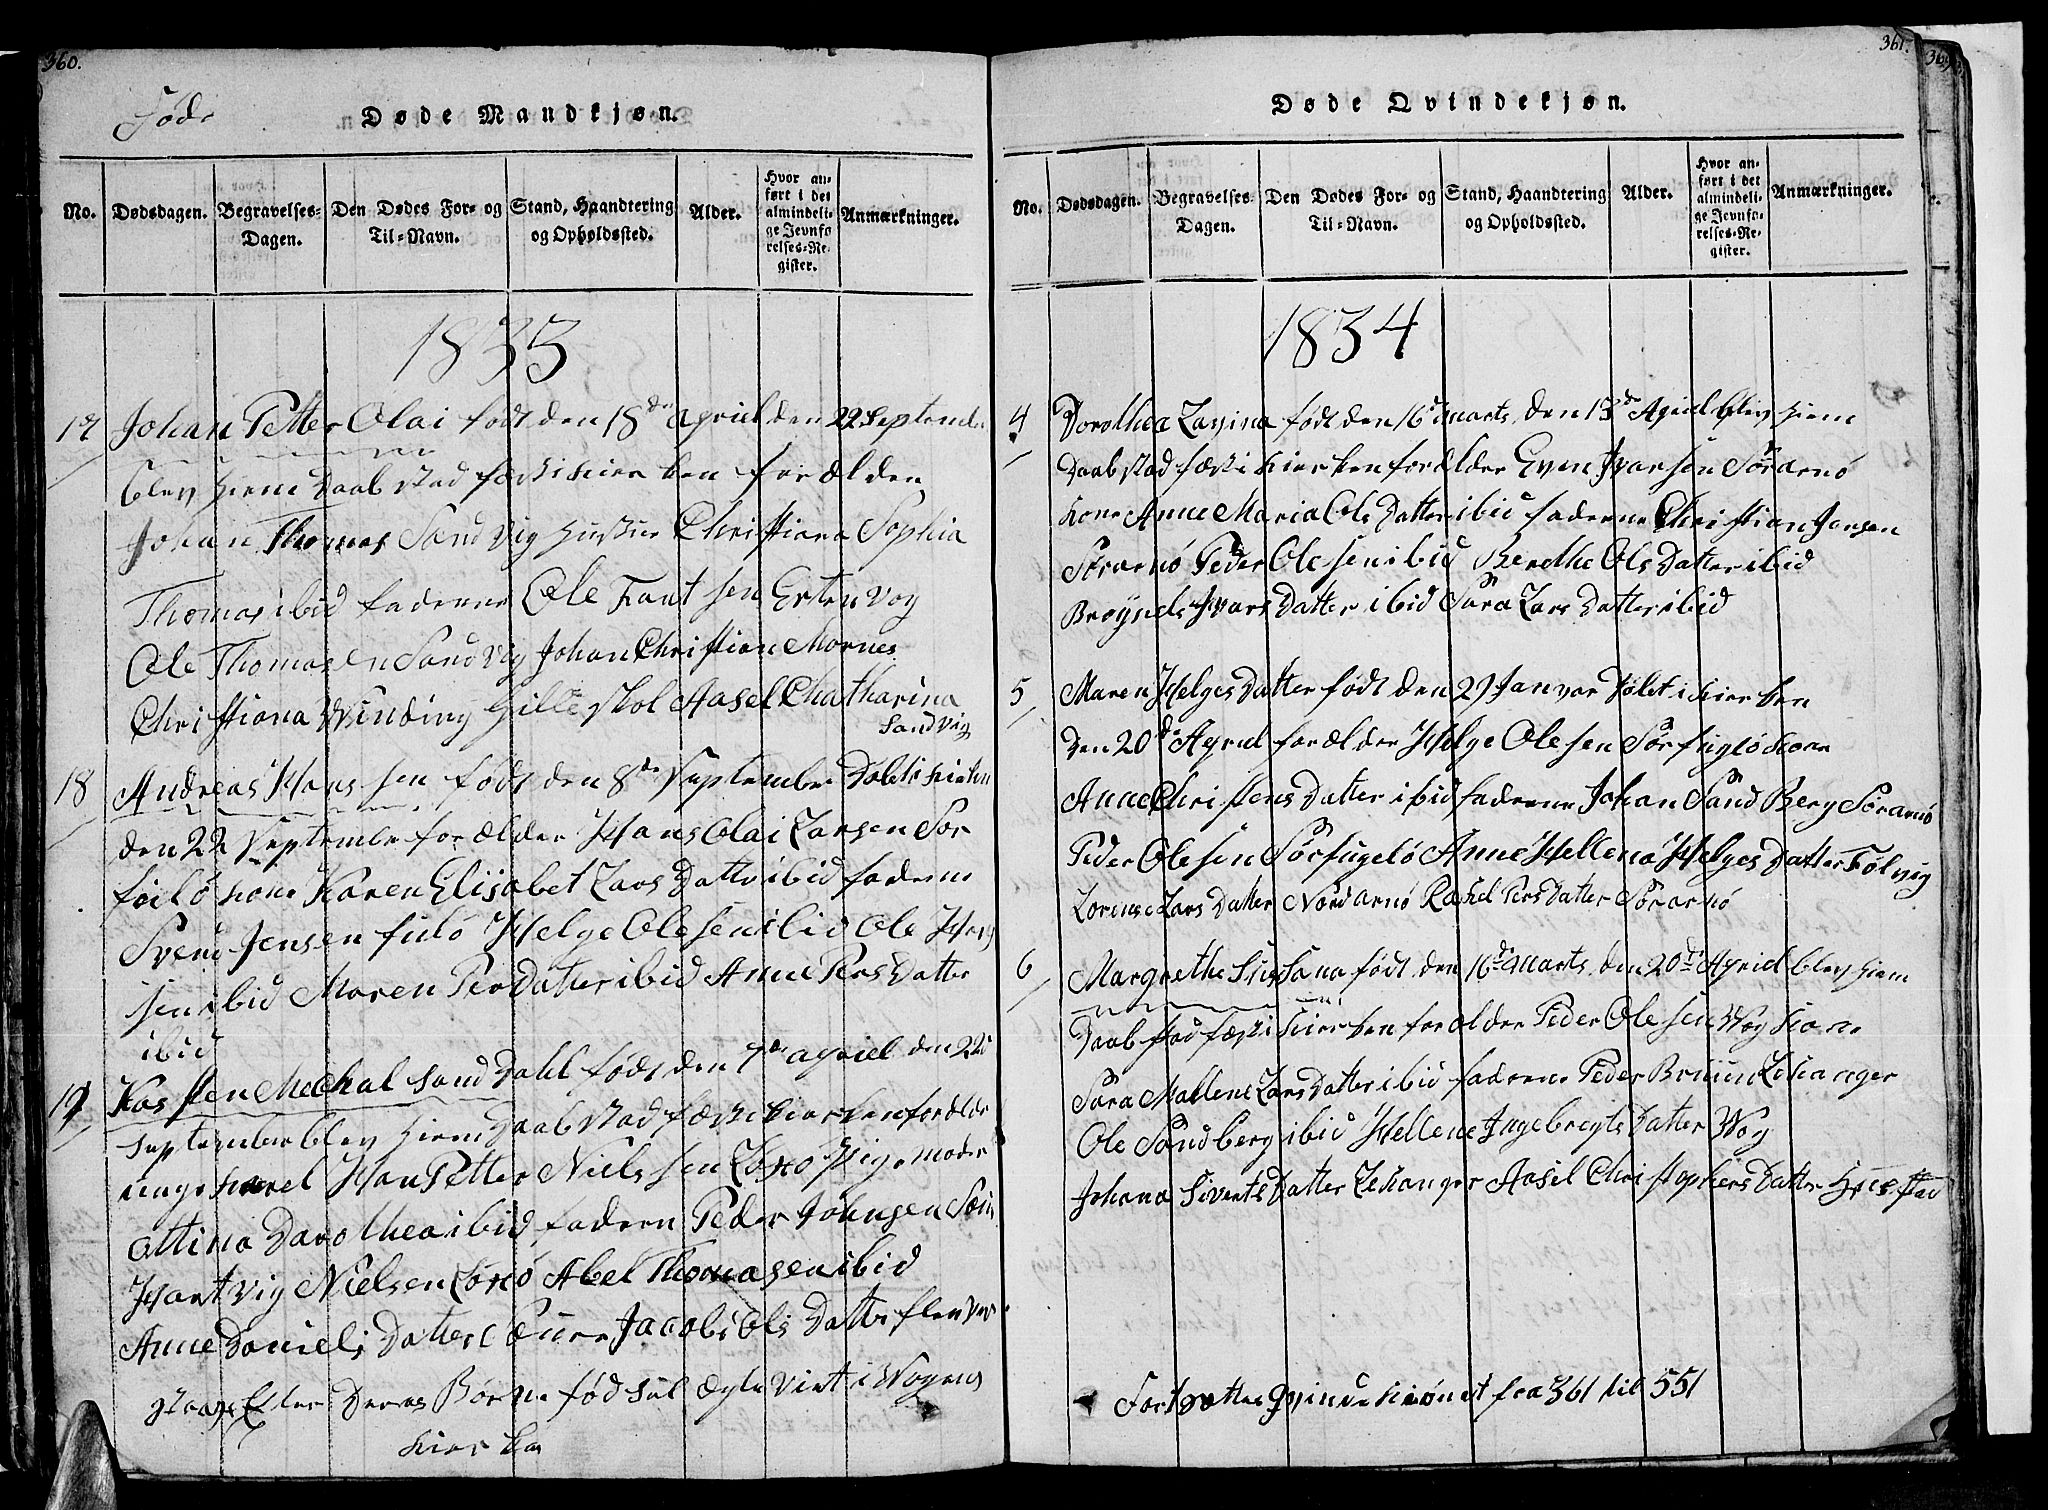 360.
Føde
Døde Mandkjøn.
No.
Dødsdagen.
Begravelses-
Dagen.
Den Dødes For- og
Til-Navn.
Stand, Haandtering
og Opholdssted.
Alder.
Hvor an-
ført i det
almindeli-
ge Jevnfø-
relses-Re-
gister.
Anmærkninger.
1833
17 Johan Petter Olai født den 18de April den 22 September
blev hiem Daab stad fæst i kierken forælder
Johan Thomas Sandvig hustrue Christiana Sophia
Thomas ibid faderne Ole Fantsen Ertenvog
Ole Thomasen Sandvig Johan Christian Mornes
Christiana Winding Gilleskol Aasel Chatharina
Sandvig
18 Andreas Hanssen født den 8de September Døbt i kierken
den 22 September forælder Hans Olai Larsen Sør
fuilö kone Karen Elisabet Lars Datter ibid faderne
Svend Jensen fulö Helge Olesen ibid Ole Hans
sen ibid Maren Per Datter ibid Anne Pers Datter
ibid
19 Karsten Mechal Sand Dahl født den 7de April den 22de
September blev hiem Daab stad fæst i kierken forælder
unge karel Han Petter Nielssen pige moder
Ottina Darothea ibid fadern Peder Johnsen
Hartvig Nielsen Abel Thomasen ibid
Anne Daniels Datter Jacobi Ols Datter
Efter Deres Børne fødsel ægte viet i Wogens
kierke
361.
Døde Qvindekjøn.
No.
Dødsdagen.
Begravelses-
Dagen.
Den Dødes For- og
Til-Navn.
Stand, Haandtering
og Opholdssted.
Alder.
Hvor an-
ført i det
almindeli-
ge Jevnfø-
relses-Re-
gister.
Anmærkninger.
1834
4 Dorothea Lavina født den 16de Marts den 13de April blev hiem
Daab stad fæst i kierken forælder Even Ivarsen Sørarnø
kone Anne Maria Ols Datter ibid faderne Christian Jensen
Sørarnø Peder Olesen ibid Berethe Ols Datter ibid
Brøynels Ivars Datter ibid Sara Lars Datter ibid
5 Maren Helges Datter født den 29 Januar Døbt i kierken
den 20de April forælder Helge Olesen Sørfuglö kone
Anne Christens Datter ibid faderne Johan Sand Berg Sørarnø
Peder Olesen Sørfugelö Anne Hellena Helges Datter Følvig
Lorense Lars Datter Nordarnø Rakel Pers Datter Sørarnø
6 Margrethe Susana født den 16de Marts den 20de April blev hiem
Daab stad fæst i kierken forælder Peder Olesen Wog kone
Sara Mallene Lars Datter ibid faderne Peder Bruun Lekanger
Ole Sandberg ibid Hellene Ingebregts Datter Wog
Johana Siverts Datter Lekanger Aasel Christophers Datter
Fortsættes Qvinde kiønet fra 361 til 551